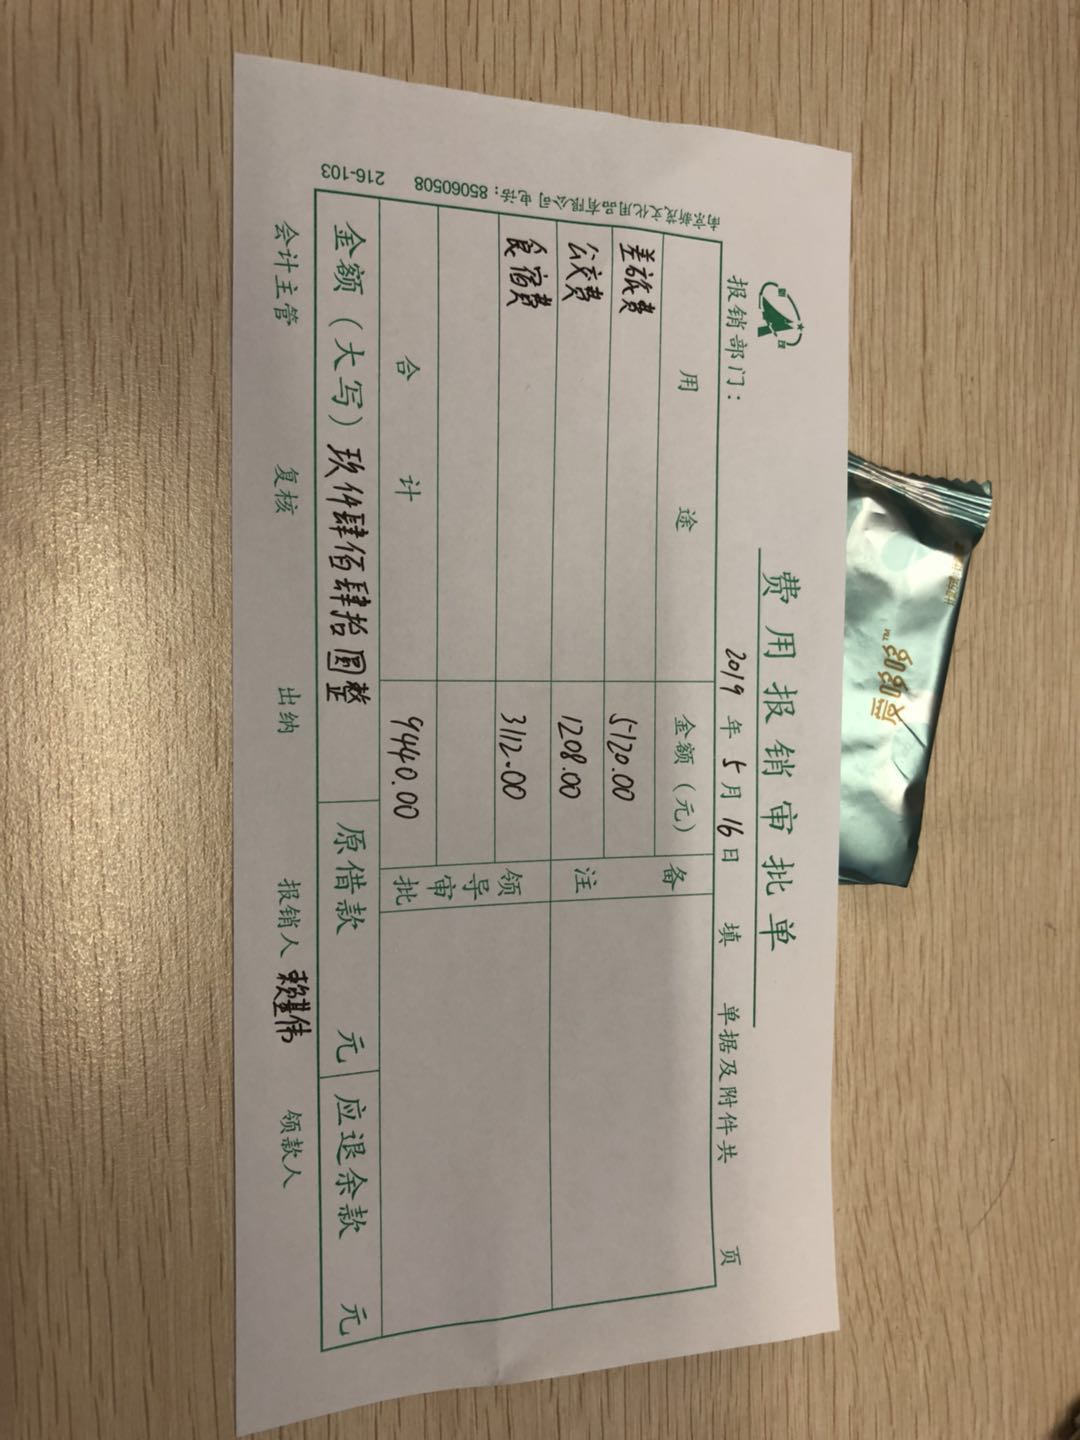 费用报销审批单
报销部门： 2019年5月16日 填 单据及附件共 页
用途 金额（元） 备注
差旅费 5120.00
公交费 1208.00
食宿费 3112.00 领导审批
合计 9440.00
金额（大写）玖仟肆佰肆拾圆整 原借款 元 应退余款 元
会计主管 复核 出纳 报销人 赖基伟 领款人
文化用品有限公司 电话：85060508 216-103